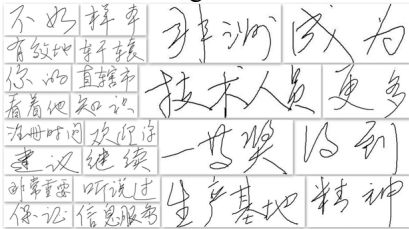 不如 样本
有效地 车子 车辕
你的 直辖市
看着他 知识
注册时间 欢迎你
建议 继续
非常重要 听说过
保证 信息服务
非洲 成为
技术人员 更多
一等奖 得到
生产基地 精神